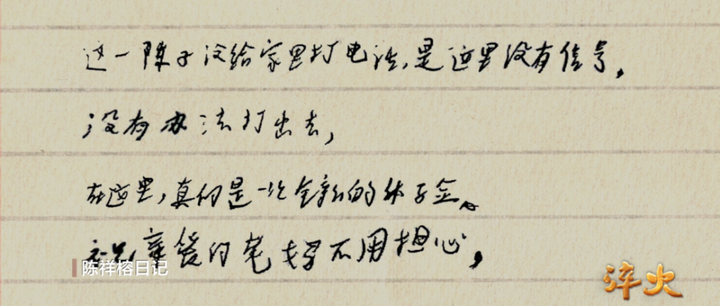 这一陣子没给家里打电话,是这里没有信号,
没有办法打出去,
在这里,真的是一次全新的体念。
亲爱的老母不用担心,
陈祥榕日记
淬火